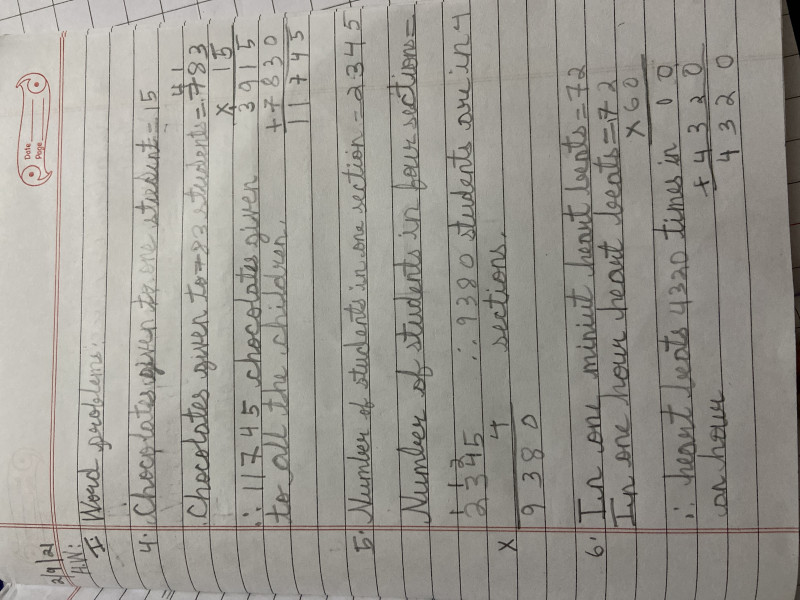 Date
Page
2/9/21
H.N:
I. Word problems:
4. Chocolates given to one student = 15
Chocolates given to 783 students = 783
× 15
3915
+7830
11745
∴ 11745 chocolates given
to all the children.
5. Number of students in one section = 2345
Number of students in four sections =
2345
× 4
9380
∴ 9380 students are in 4
sections.
6. In one miniut heart beats = 72
In one hour heart beats = 72
×60
00
+4320
4320
∴ heart beats 4320 times in
an hour